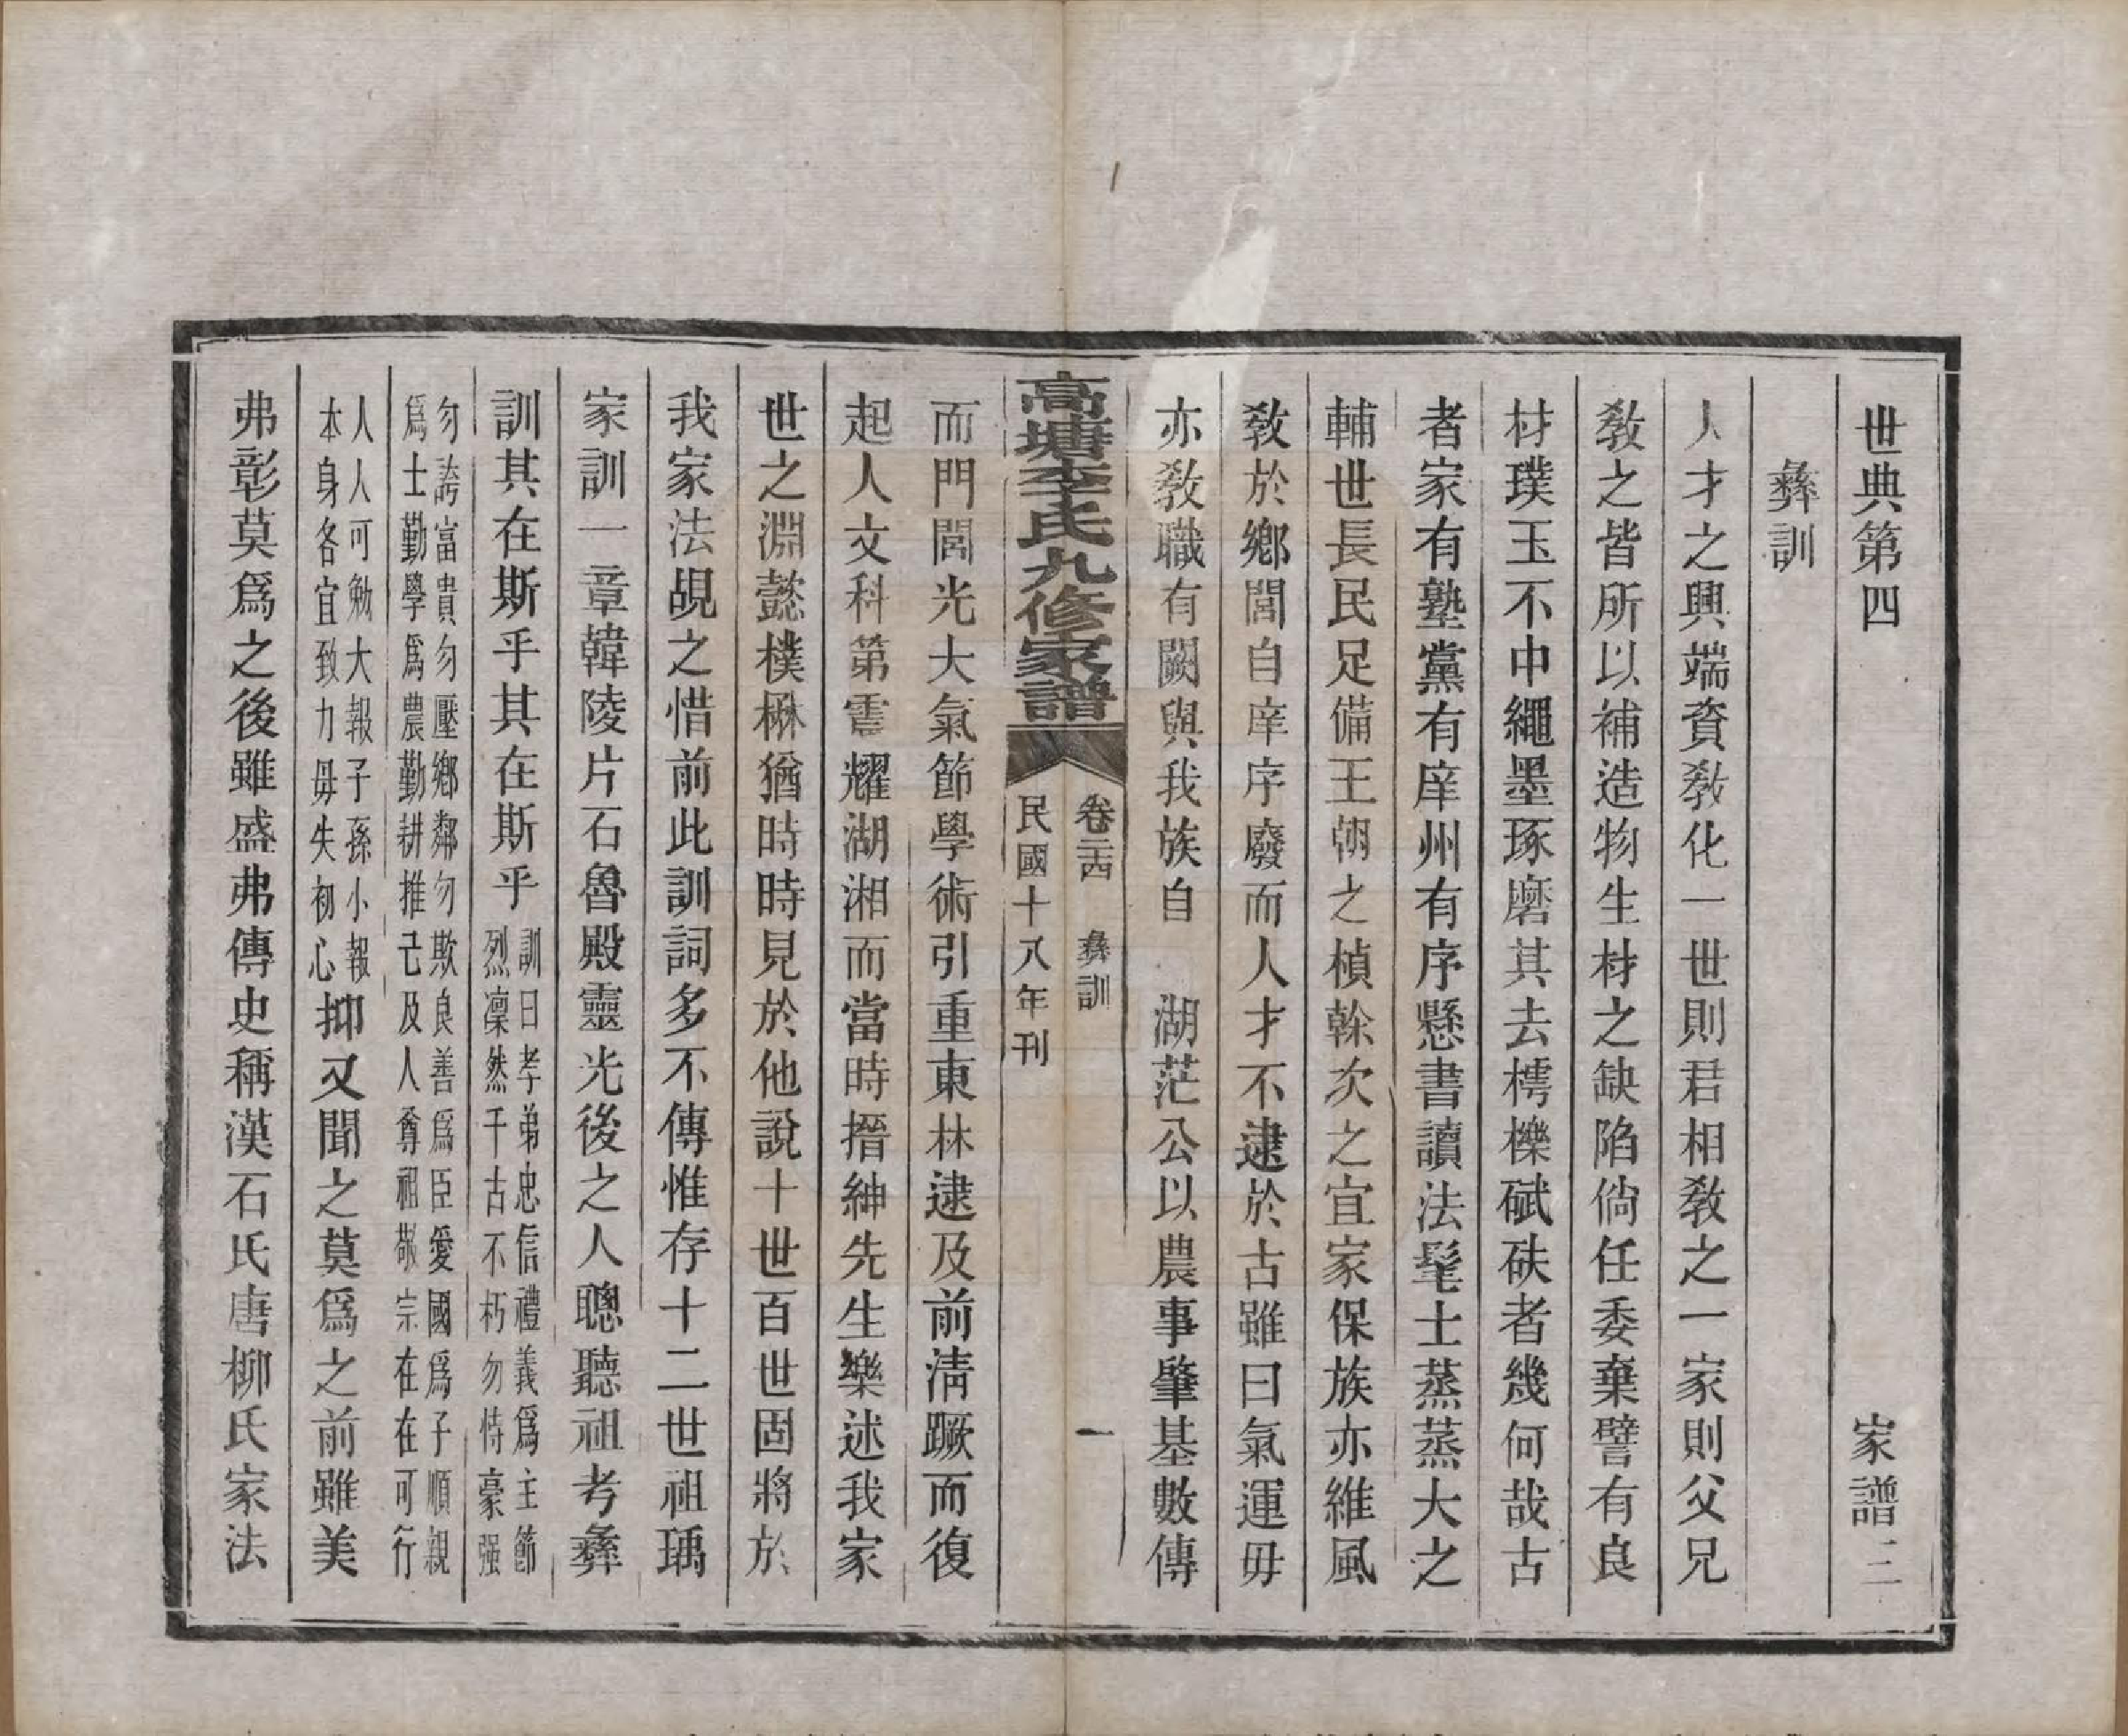 世典第四 家譜二
彝訓
人才之興端資教化一世則君相教之一家則父兄
教之皆所以補造物生材之缺陷倘任委棄譬有良
材璞玉不中繩墨琢磨其去樗櫟碔砆者幾何哉古
者家有塾黨有庠州有序懸書讀法髦士蒸蒸大之
輔世長民足備王朝之楨榦次之宜家保族亦維風
教於鄉閭自庠序廢而人才不逮於古雖曰氣運毋
亦教職有闕與我族自 湖茫公以農事肇基數傳
高塘李氏九修家譜 卷二十四 彝訓 一
民國十八年刊
而門閭光大氣節學術引重東林逮及前淸蹶而復
起人文科第震耀湖湘而當時搢紳先生樂述我家
世之淵懿樸楙猶時時見於他說十世百世固將於
我家法覘之惜前此訓詞多不傳惟存十二世祖瑀
家訓一章韓陵片石魯殿靈光後之人聰聽祖考彝
訓其在斯乎其在斯乎
訓曰孝弟忠信禮義爲主節
烈凛然千古不朽勿恃豪强
勿誇富貴勿壓鄉鄰勿欺良善爲臣愛國爲子順親
爲士勤學爲農勤耕推己及人尊祖敬宗在在可行
人人可勉大報子孫小報
本身各宜致力毋失初心
抑又聞之莫爲之前雖美
弗彰莫爲之後雖盛弗傳史稱漢石氏唐柳氏家法